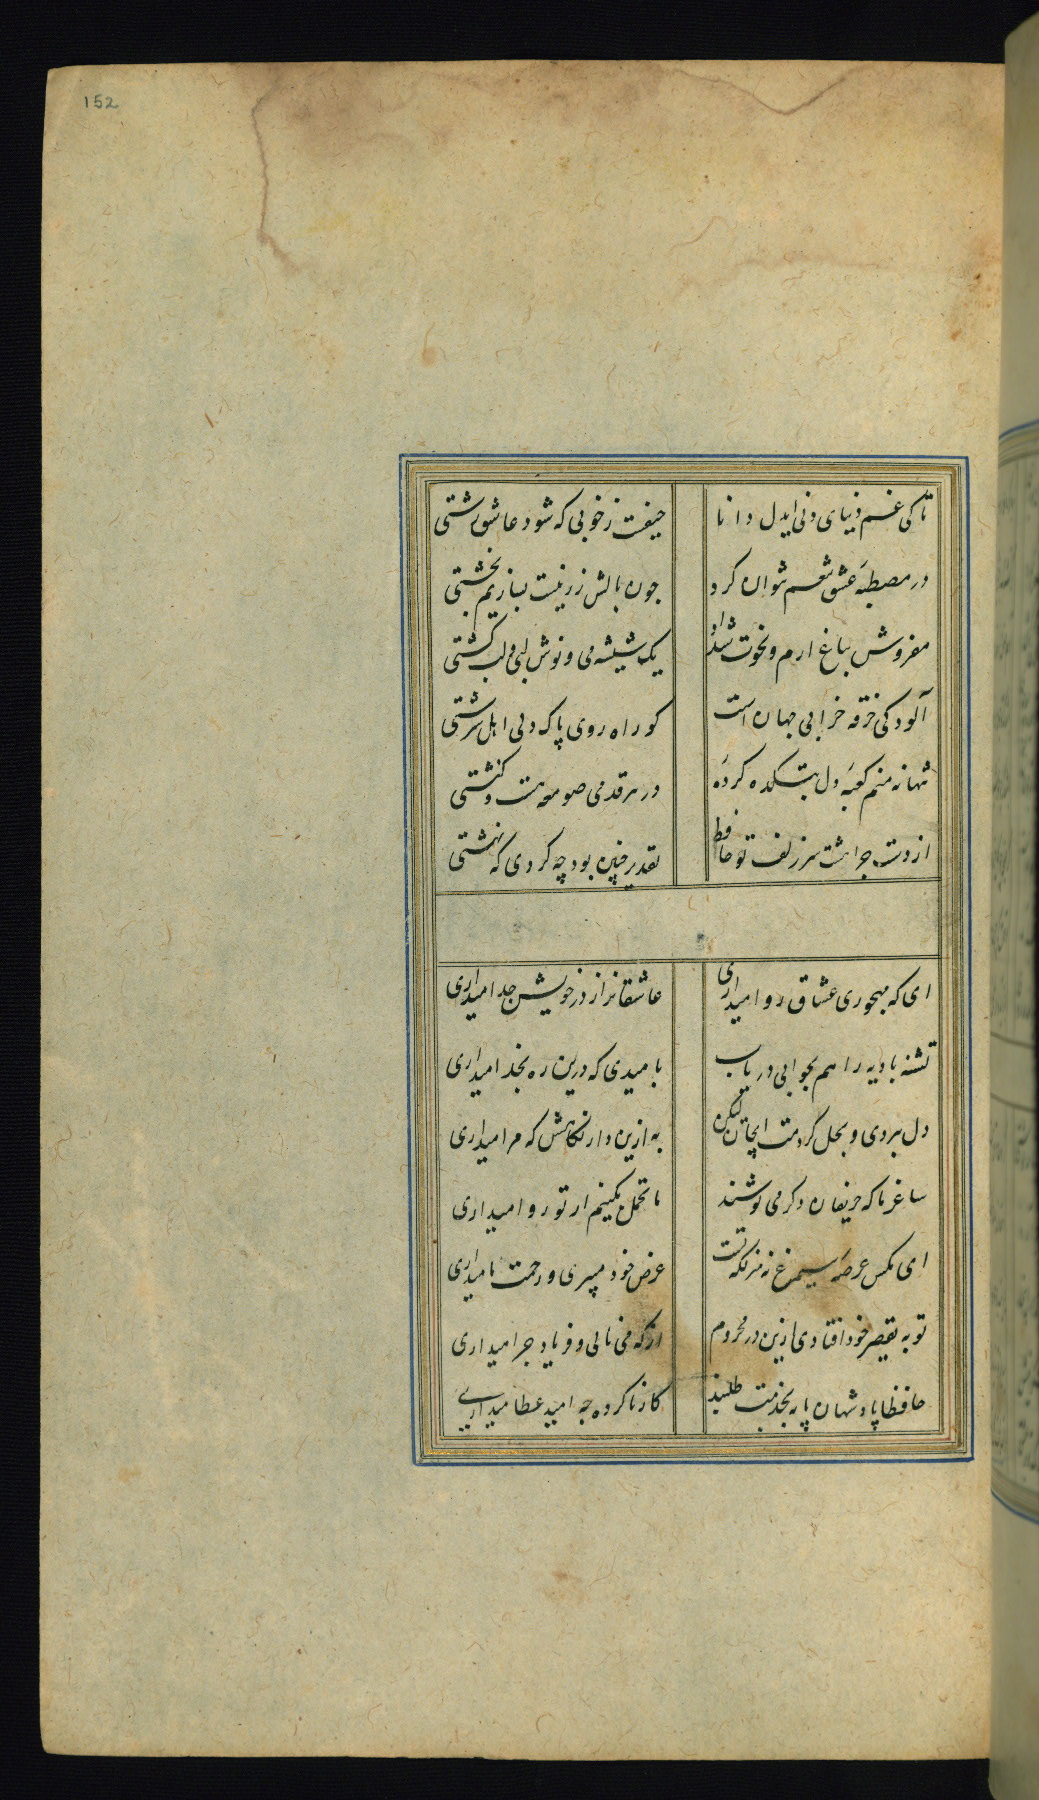 152
تا کی غم دنیای دنی ایدل دانا
حیفست ز خوبی که شود عاشق زشتی
در مصطبهٔ عشق تنعم نتوان کرد
چون بالش زر نیست بسازیم بخشتی
مفروش بباغ ارم و نخوت شداد
یک شیشه می و نوش لبی و لب کشتی
آلودگی خرقه خرابی جهان است
کو راه روی پاک دلی اهل سرشتی
تنها نه منم کعبهٔ دل بتکده کرده
در هر قدمی صومعه هست و کنشتی
از دست چرا هشت سر زلف تو حافظ
تقدیر چنین بود چه کردی که نهشتی
ای که مهجوری عشاق روا میداری
عاشقانرا ز در خویش جدا میداری
تشنه بادیه را هم بجوابی دریاب
بامیدی که درین ره بخدا میداری
دل ببردی و بحل کردمت ایجان لیکن
به ازین دار نگاهش که مرا میداری
ساغر ما که حریفان دگر می نوشند
ما تحمل نکنیم ار تو روا میداری
ای مگس عرصهٔ سیمرغ نه منزلگه تست
عرض خود میبری و زحمت ما میداری
تو به تقصیر خود افتادی ازین در محروم
از که می نالی و فریاد چرا میداری
حافظا پادشهان پایه بخدمت طلبند
کار نا کرده چه امید عطا میداری